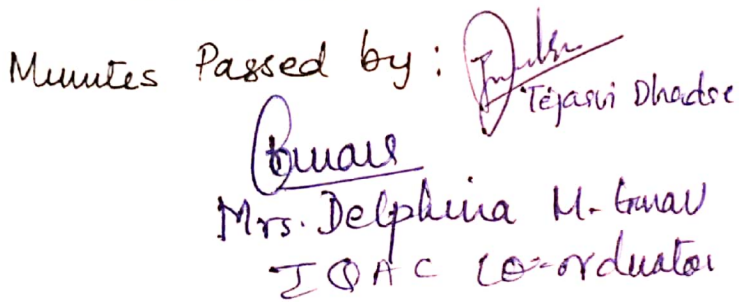 Minutes Passed by :
Tejasvi Dhadse
Mrs. Delphina M.
IQAC Co-ordinator